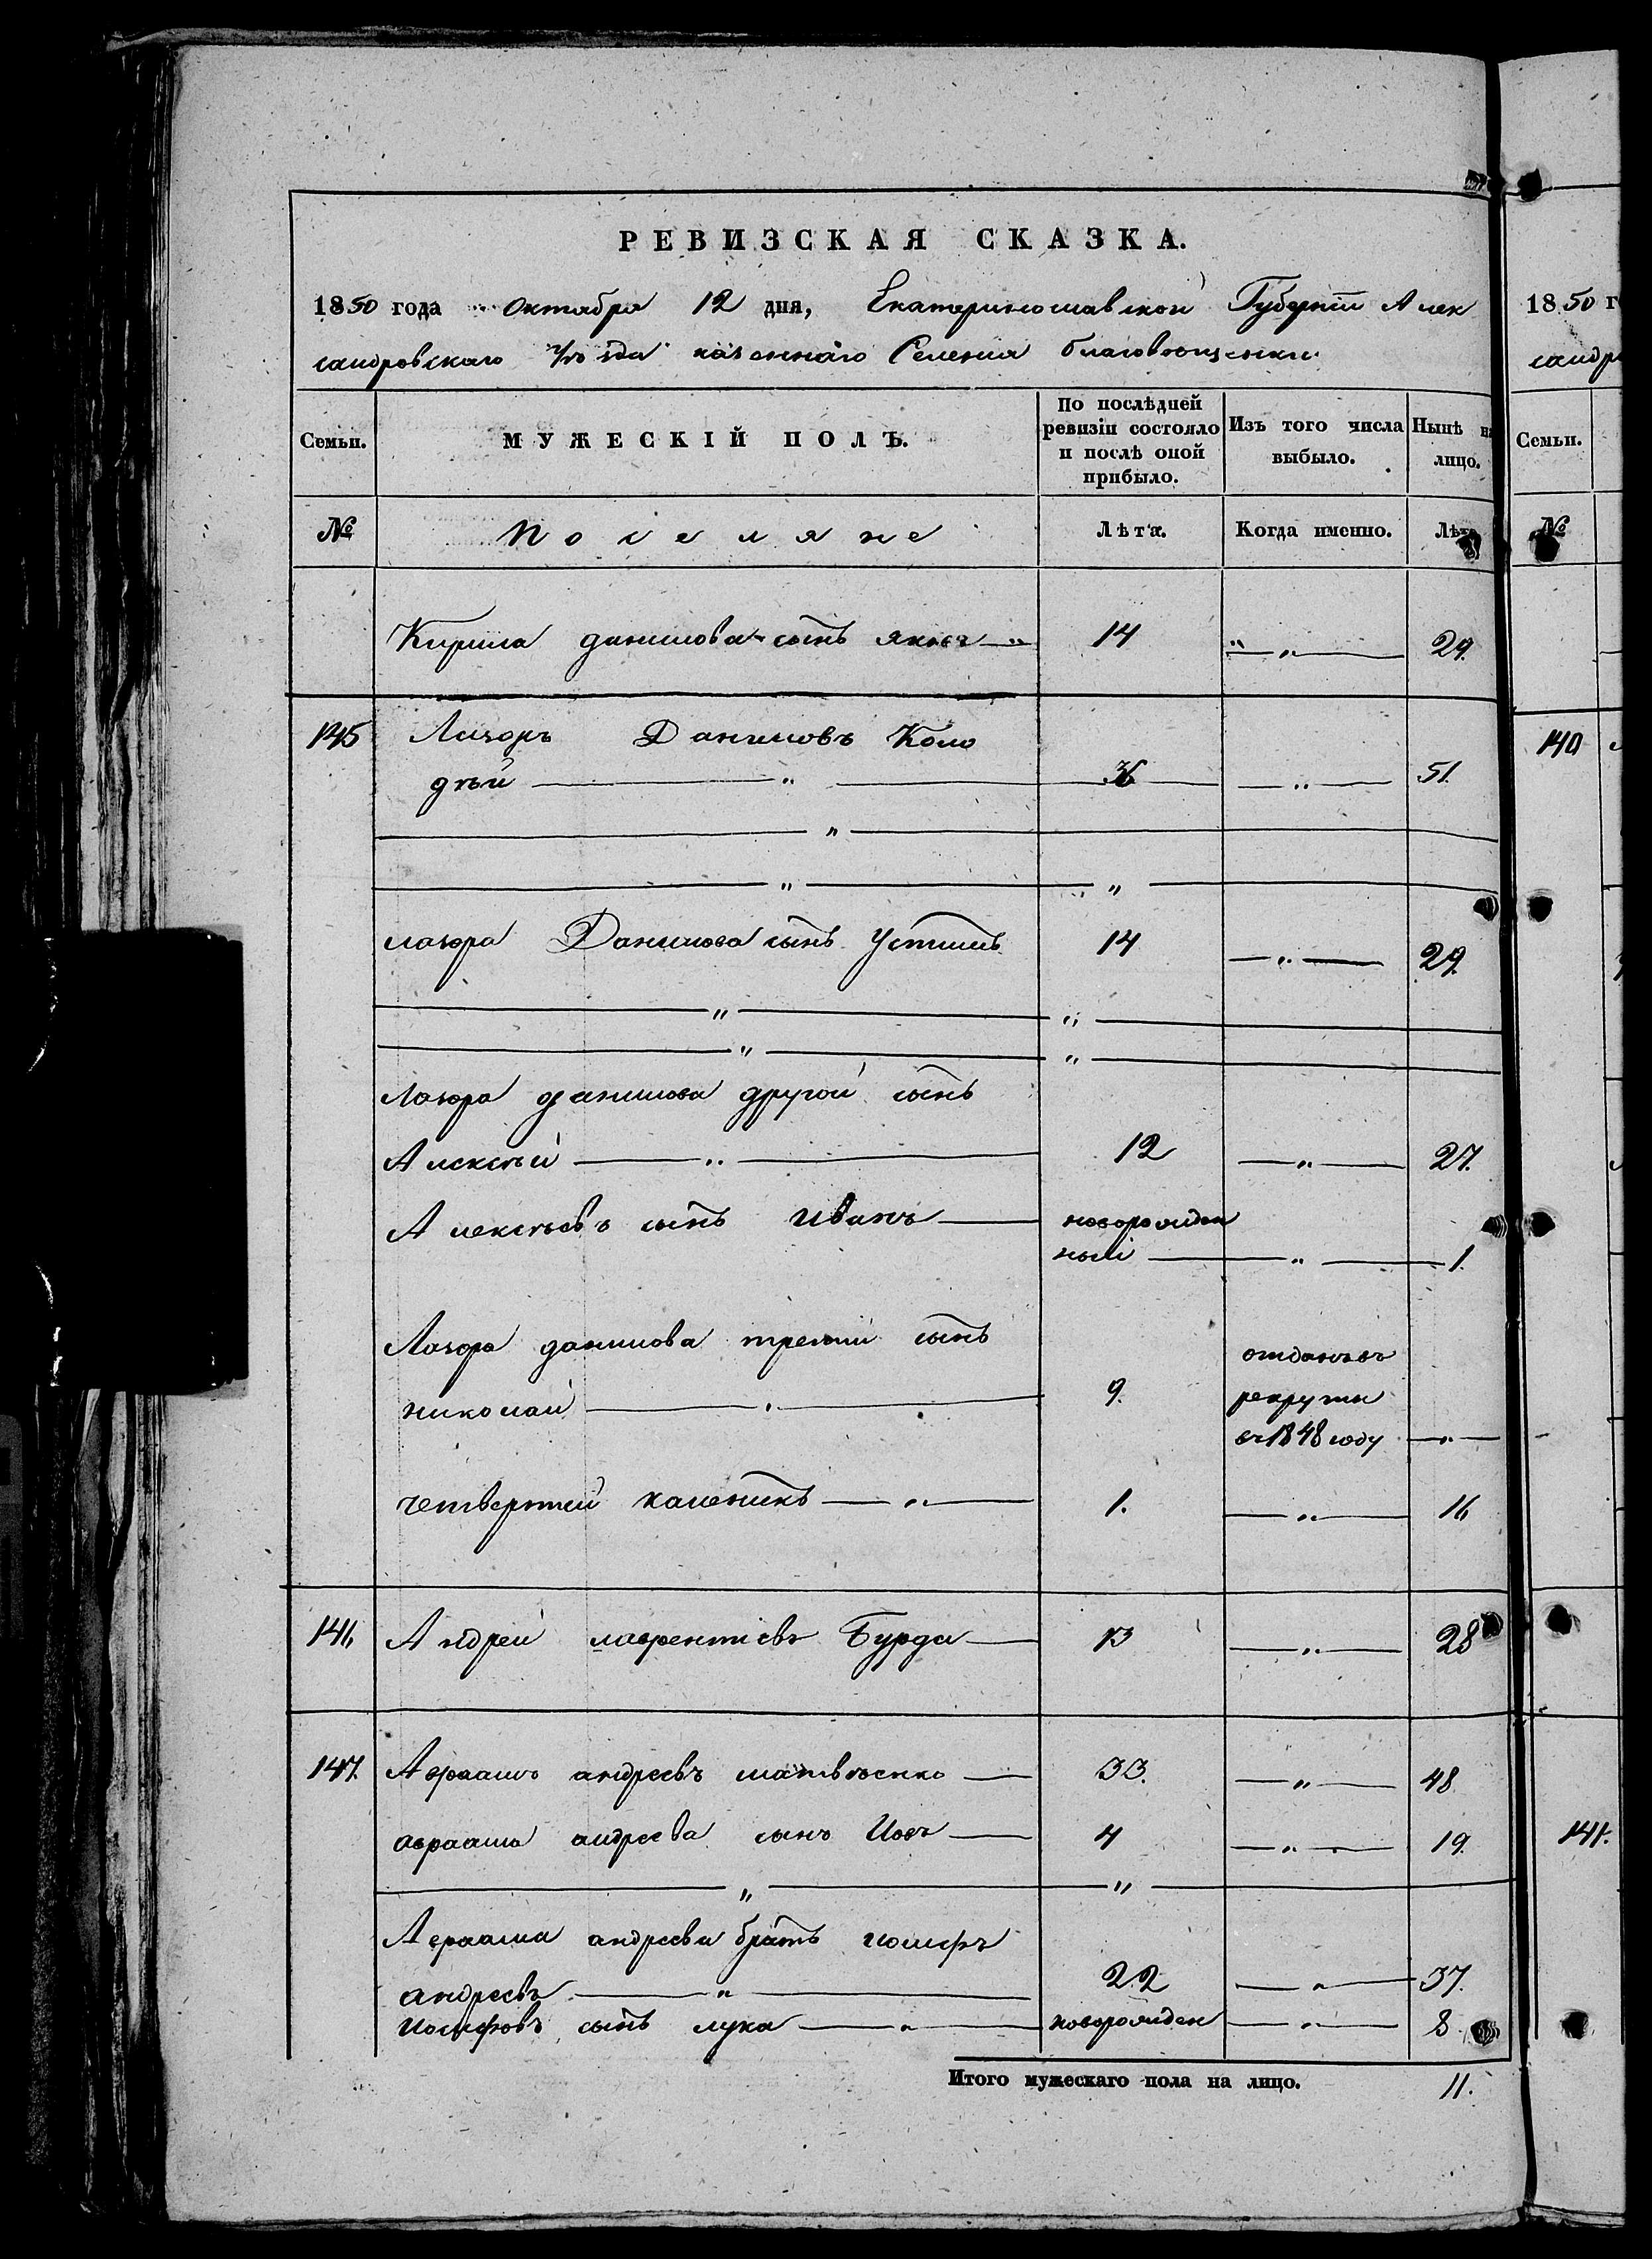 РЕВИЗСКАЯ СКАЗКА.
1850 года Октября 12 дня, Екатеринославской Губерніи Алек
сандровскаго уѣзда казеннаго Селенія благовѣщенки.
Семьи. МУЖЕСКІЙ ПОЛЪ. По послѣдней ревизіи состояло и послѣ оной прибыло. Изъ того числа выбыло. Нынѣ на лицо.
№ Поселяне Лѣта. Когда именно. Лѣта
Кирила данилова сынъ яковъ — „ 14 „ — „ — 29.
145 Лазоръ Даниловъ Коло
дѣй — „ — 36 — „ — 51.
— „ —
— „ — „ —
лазора Данилова сынъ Устимъ 14 — „ — 29.
— „ — „ —
— „ — „ —
Лазора данилова другой сынъ
Алексѣй — „ — 12 — „ — 27.
Алексѣевъ сынъ иванъ — новорожден
ный — „ — 1.
Лазора данилова третий сынъ
николай — „ — 9. отданъ въ
рекруты
въ 1848 году — „ —
четвертый каленикъ — „ — 1. — „ — 16
146 Андрей лаврентіевъ Бурда — 13 — „ — 28
147. Авраамъ андреевъ матвѣенко — 33. — „ — 48
авраама андреева сынъ Иовъ — 4 — „ — 19.
— „ — „ —
Авраама андреева братъ иосифъ
андреевъ — „ — 22 — „ — 37.
Иосифовъ сынъ лука — „ — новорожден — „ — 8
Итого мужескаго пола на лицо. 11.
1850 г
сандр
Семьи.
№
140
141.